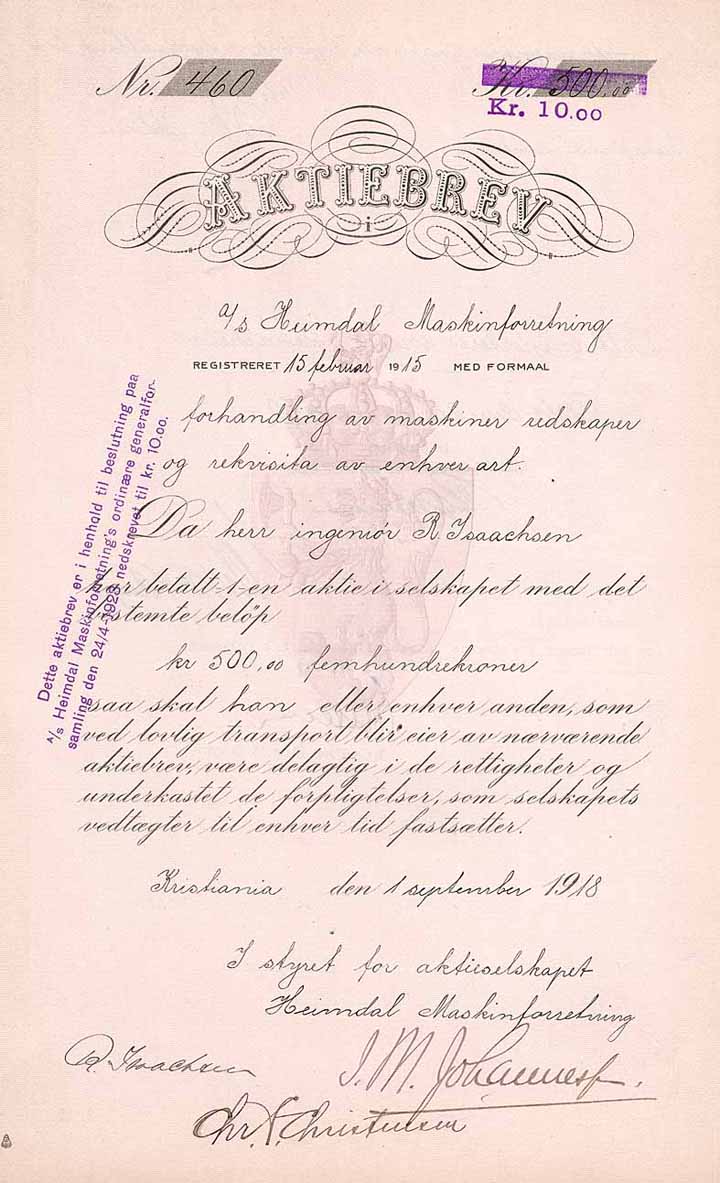 Nr. 460
Kr. 500.00
Kr. 10.00
AKTIEBREV
i
A/s Heimdal Maskinforretning
REGISTRERET 15 februar 1915 MED FORMAAL
forhandling av maskiner redskaper
og rekvisita av enhver art.
Da herr ingeniör R. Isaachsen
har betalt -1- en aktie i selskapet med det
bestemte belöp
kr 500,00 femhundrekroner
saa skal han eller enhver anden, som
ved lovlig transport blir eier av nærværende
aktiebrev, være delagtig i de rettigheter og
underkastet de forpligtelser, som selskapets
vedtægter til enhver tid fastsætter.
Kristiania den 1 september 1918
I styret for aktieselskapet
Heimdal Maskinforretning
R. Isaachsen
J. M. Johannes
Chr. F. Christensen
Dette aktiebrev er i henhold til beslutning paa
A/s Heimdal Maskinforretning's ordinære generalfor-
samling den 24/4-1928 nedskrevet til kr. 10.00.